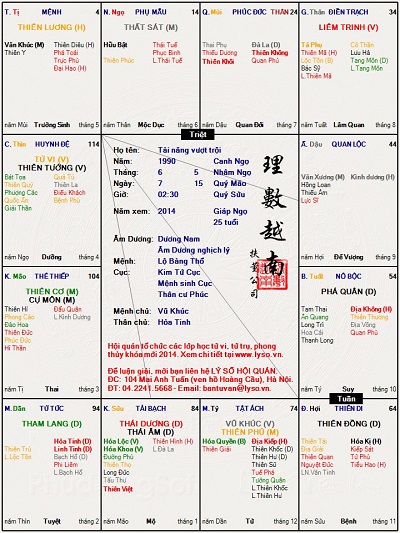 T. Tị MỆNH 4
THIÊN LƯƠNG (H)
Văn Khúc (M) Thiên Diêu (H)
Thiên Y Phá Toái
Trực Phù
Đại Hao (H)
năm Mùi Trường Sinh tháng 5
N. Ngọ PHỤ MẪU 14
THẤT SÁT (M)
Hữu Bật Thái Tuế
Thiên Phúc Phục Binh
L.Thái Tuế
năm Thân Mộc Dục tháng 6
Q. Mùi PHÚC ĐỨC THÂN 24
Thai Phụ Đà La (D)
Thiếu Dương Thiên Không
Thiên Khôi Quan Phủ
năm Dậu Quan Đới tháng 7
G. Thân ĐIỀN TRẠCH 34
LIÊM TRINH (V)
Tả Phụ Cô Thần
Thiên Mã (H) Lưu Hà
Lộc Tồn (B) Tang Môn (D)
Bác Sỹ L.Tang Môn
L.Thiên Mã
năm Tuất Lâm Quan tháng 8
C. Thìn HUYNH ĐỆ 114
TỬ VI (V)
THIÊN TƯỚNG (V)
Bát Tọa Quả Tú
Thiên Quý Thiên La
Phượng Các Điếu Khách
Quốc Ấn Bệnh Phù
Giải Thần
năm Ngọ Dưỡng tháng 4
Triệt
Họ tên: Tài năng vượt trội
Năm: 1990 Canh Ngọ
Tháng: 6 5 Nhâm Ngọ
Ngày: 7 15 Quý Mão
Giờ: 02:30 Quý Sửu
Năm xem: 2014 Giáp Ngọ
25 tuổi
Âm Dương: Dương Nam
Âm Dương nghịch lý
Mệnh: Lộ Bàng Thổ
Cục: Kim Tứ Cục
Mệnh sinh Cục
Thân cư Phúc
Mệnh chủ: Vũ Khúc
Thân chủ: Hỏa Tinh
理數越南
Hội quán tổ chức các lớp học tử vi, tứ trụ, phong
thủy khóa mới 2014. Xem chi tiết tại www.lyso.vn.
Để luận giải, mời bạn liên hệ LÝ SỐ HỘI QUÁN.
ĐC: 104 Mai Anh Tuấn (ven hồ Hoàng Cầu), Hà Nội.
ĐT: 04.2241.5668 - Email: bantuvan@lyso.vn.
Ấ. Dậu QUAN LỘC 44
Văn Xương (M) Kình dương (H)
Hồng Loan
Thiếu Âm
Lực Sĩ
năm Hợi Đế Vượng tháng 9
K. Mão THÊ THIẾP 104
THIÊN CƠ (M)
CỰ MÔN (M)
Thiên Hỉ Đẩu Quân
Phong Cáo L.Kình Dương
Đào Hoa
Thiên Đức
Phúc Đức
Hỉ Thần
năm Tị Thai tháng 3
B. Tuất NÔ BỘC 54
PHÁ QUÂN (D)
Tam Thai Địa Không (H)
Ân Quang Thiên Thương
Long Trì Địa Võng
Hoa Cái Quan Phù
Thanh Long
năm Tý Suy tháng 10
Tuần
M. Dần TỬ TỨC 94
THAM LANG (D)
Thiên Trù Hỏa Tinh (D)
L.Lộc Tồn Linh Tinh (D)
Bạch Hổ (D)
Phi Liêm
L.Bạch Hổ
năm Thìn Tuyệt tháng 2
K. Sửu TÀI BẠCH 84
THÁI DƯƠNG (D)
THÁI ÂM (D)
Hóa Lộc (V) Thiên Hình (H)
Hóa Khoa (V) L.Đà La
Đường Phù
Thiên Thọ
Long Đức
Tấu Thư
Thiên Việt
năm Mão Mộ tháng 1
M. Tý TẬT ÁCH 74
VŨ KHÚC (V)
THIÊN PHỦ (M)
Hóa Quyền (B) Địa Kiếp (H)
Thiên Giải Thiên Khốc (D)
Thiên Hư (D)
Thiên Sứ
Tuế Phá
Tướng Quân
L.Thiên Khốc
L.Thiên Hư
năm Dần Tử tháng 12
Đ. Hợi THIÊN DI 64
THIÊN ĐỒNG (D)
Thiên Tài Hóa Kị (H)
Địa Giải Kiếp Sát
Thiên Quan Tử Phù
Nguyệt Đức Tiểu Hao (H)
LN.Văn Tinh
năm Sửu Bệnh tháng 11